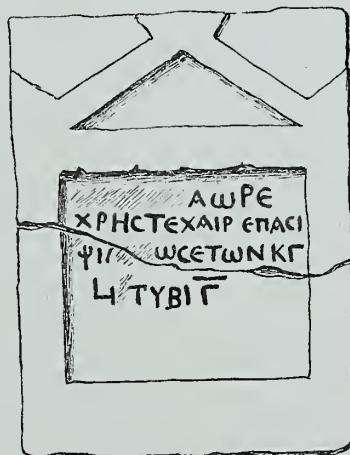 ΑωΡΕ
ΧΡΗCΤΕΧΑΙΡ ΕΠΑCΙ
ωCΕΤωΝΚΓ
LΙ ΤΥΒΙ Γ̅